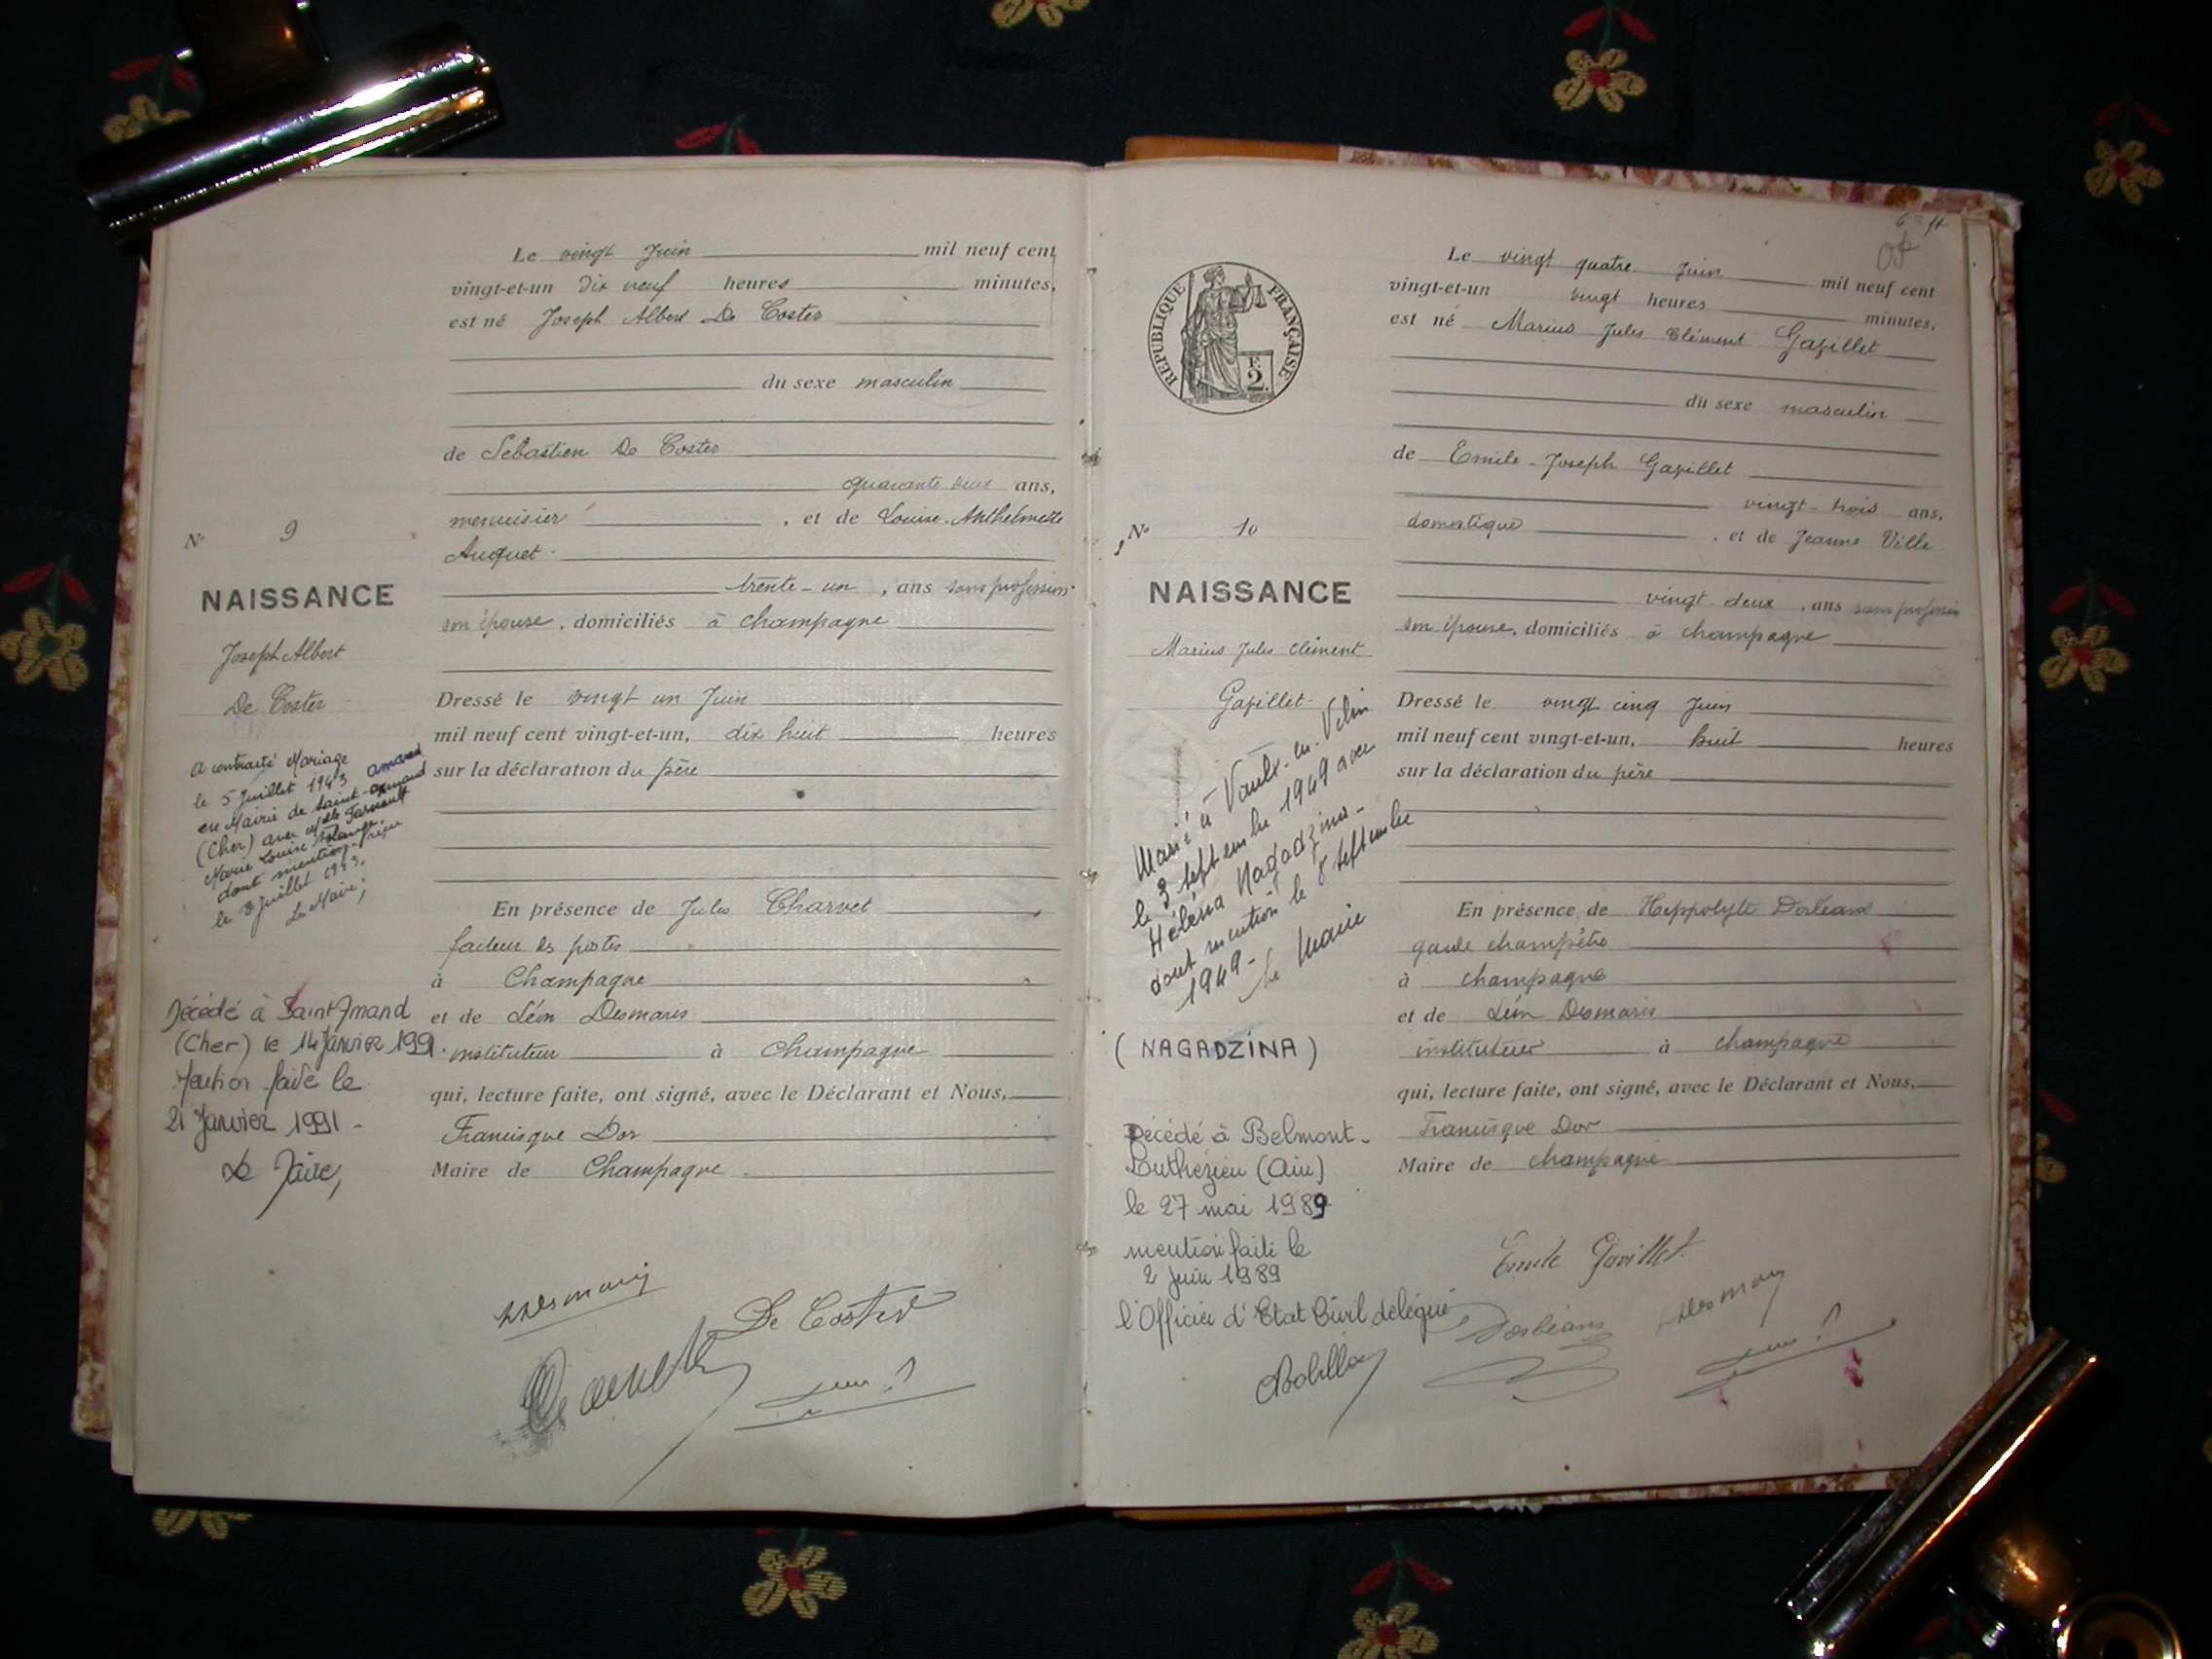 Le vingt Juin mil neuf cent
vingt-et-un Dix neuf heures minutes,
est né Joseph Albert De Coster
du sexe masculin
de Sebastien De Coster
quarante deux ans,
menuisier , et de Louise-Anthelmette
Auquet
trente-un , ans sans profession
son épouse, domiciliés à Champagne
Dressé le vingt un Juin
mil neuf cent vingt-et-un, dix huit heures
sur la déclaration du père
En présence de Jules Charvet
facteur des postes
à Champagne
et de Léon Desmaris
instituteur à Champagne
qui, lecture faite, ont signé, avec le Déclarant et Nous,
Francisque Dor
Maire de Champagne
N° 9
NAISSANCE
Joseph Albert
De Coster
A contracté Mariage
le 5 Juillet 1943 amand
en Mairie de Saint-
(Cher) avec Melle
Marie Louise
dont mention
le 8 Juillet 1943.
Le Maire;
Décédé à Saint Amand
(Cher) le 14 Janvier 1991.
Mention faite le
21 Janvier 1991-
Le Maire,
Desmaris
De Coster
Charvet
REPUBLIQUE FRANÇAISE
F.
2.
Le vingt quatre Juin mil neuf cent
vingt-et-un vingt heures minutes,
est né Marius Jules Clément Gavillet
du sexe masculin
de Emile-Joseph Gavillet
vingt-trois ans,
domestique , et de Jeanne Ville
vingt deux , ans sans profession
son épouse, domiciliés à Champagne
Dressé le vingt cinq Juin
mil neuf cent vingt-et-un, huit heures
sur la déclaration du père
En présence de Hippolyte Dorléans
garde champêtre
à champagne
et de Léon Desmaris
instituteur à champagne
qui, lecture faite, ont signé, avec le Déclarant et Nous,
Francisque Dor
Maire de champagne
N° 10
NAISSANCE
Marius Jules Clément
Gavillet
Marié à Vaulx-en-Velin
le 3 septembre 1949 avec
Héléna Nagadzina-
dont mention le 8 septembre
1949- Le Maire
(NAGADZINA)
Décédé à Belmont-
Luthézieu (Ain)
le 27 mai 1989
mention faite le
2 Juin 1989
l'Officier d'Etat Civil délégué
Emile Gavillet
Dorléans
Desmaris